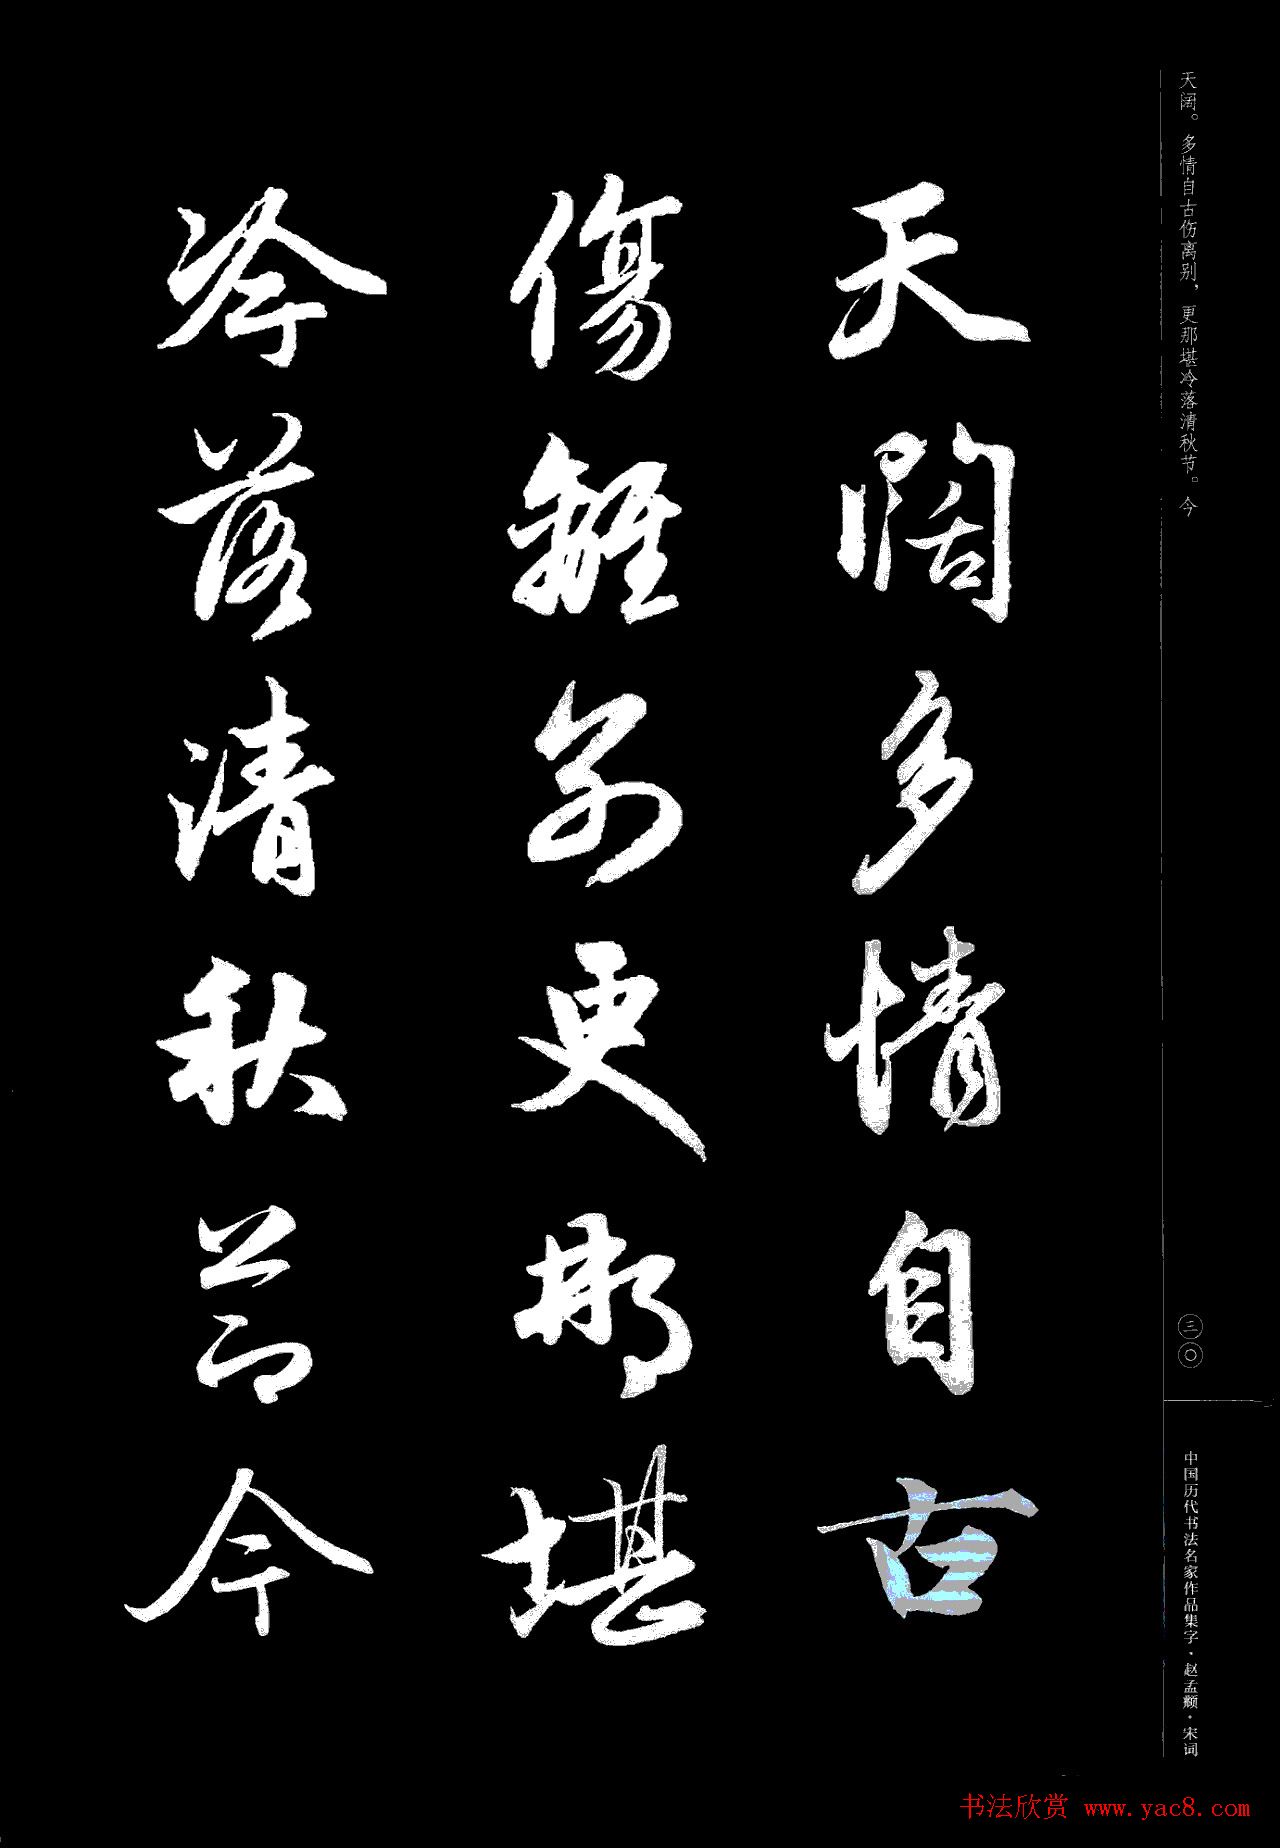 天阔。多情自古伤离别，更那堪冷落清秋节。今
天闊多情自古
傷離别更那堪
冷落清秋節今
三〇
中国历代书法名家作品集字·赵孟頫·宋词
书法欣赏 www.yac8.com